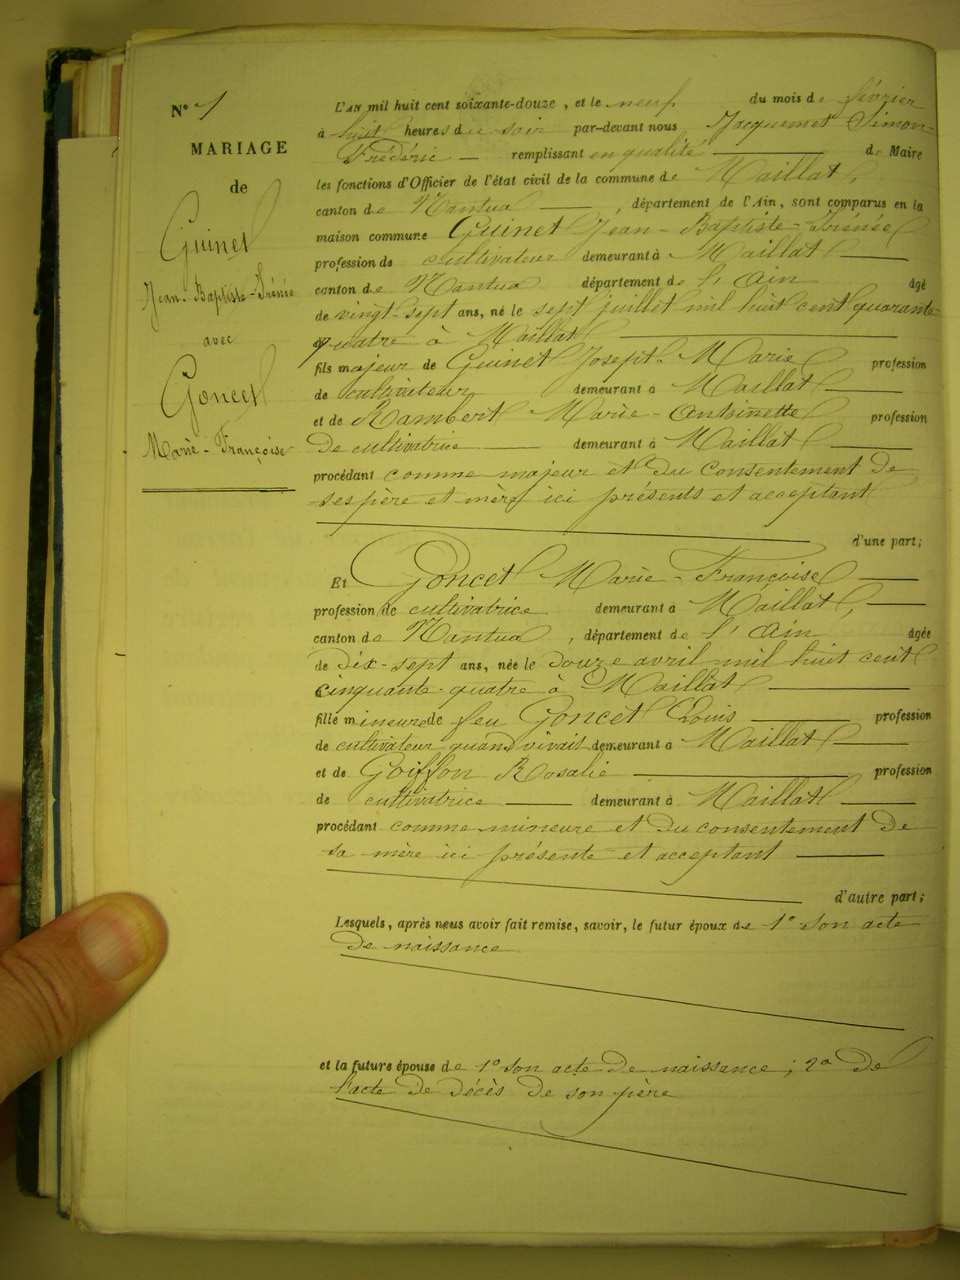 N° 1
MARIAGE
de
Guinet
Jean-Baptiste-Irénée
avec
Goncet
Marie-Françoise
L'AN mil huit cent soixante-douze, et le neuf du mois de février
à huit heures du soir par-devant nous Jacquemet Simon-
Frédéric — remplissant en qualité — de Maire
les fonctions d'Officier de l'état civil de la commune de Maillat,
canton de Nantua —, département de l'Ain, sont comparus en la
maison commune Guinet Jean-Baptiste-Irénée
profession de cultivateur demeurant à Maillat —
canton de Nantua département de l'Ain âgé
de vingt-sept ans, né le sept juillet mil huit cent quarante-
quatre à Maillat —
fils majeur de Guinet Joseph-Marie profession
de cultivateur demeurant à Maillat —
et de Rambert Marie-Antoinette profession
De cultivatrice — demeurant à Maillat —
procédant comme majeur et du consentement de
ses père et mère ici présents et acceptant
d'une part;
Et Goncet Marie-Françoise —
profession de cultivatrice demeurant à Maillat, —
canton de Nantua, département de l'Ain âgée
de dix-sept ans, née le douze avril mil huit cent
cinquante-quatre à Maillat —
fille mineure de feu Goncet Louis — profession
de cultivateur quand vivait demeurant à Maillat —
et de Goiffon Rosalie — profession
de cultivatrice — demeurant à Maillat —
procédant comme mineure et du consentement de
sa mère ici présente et acceptant —
d'autre part;
Lesquels, après nous avoir fait remise, savoir, le futur époux de 1° son acte
de naissance
et la future épouse de 1° son acte de naissance; 2° de
l'acte de décès de son père